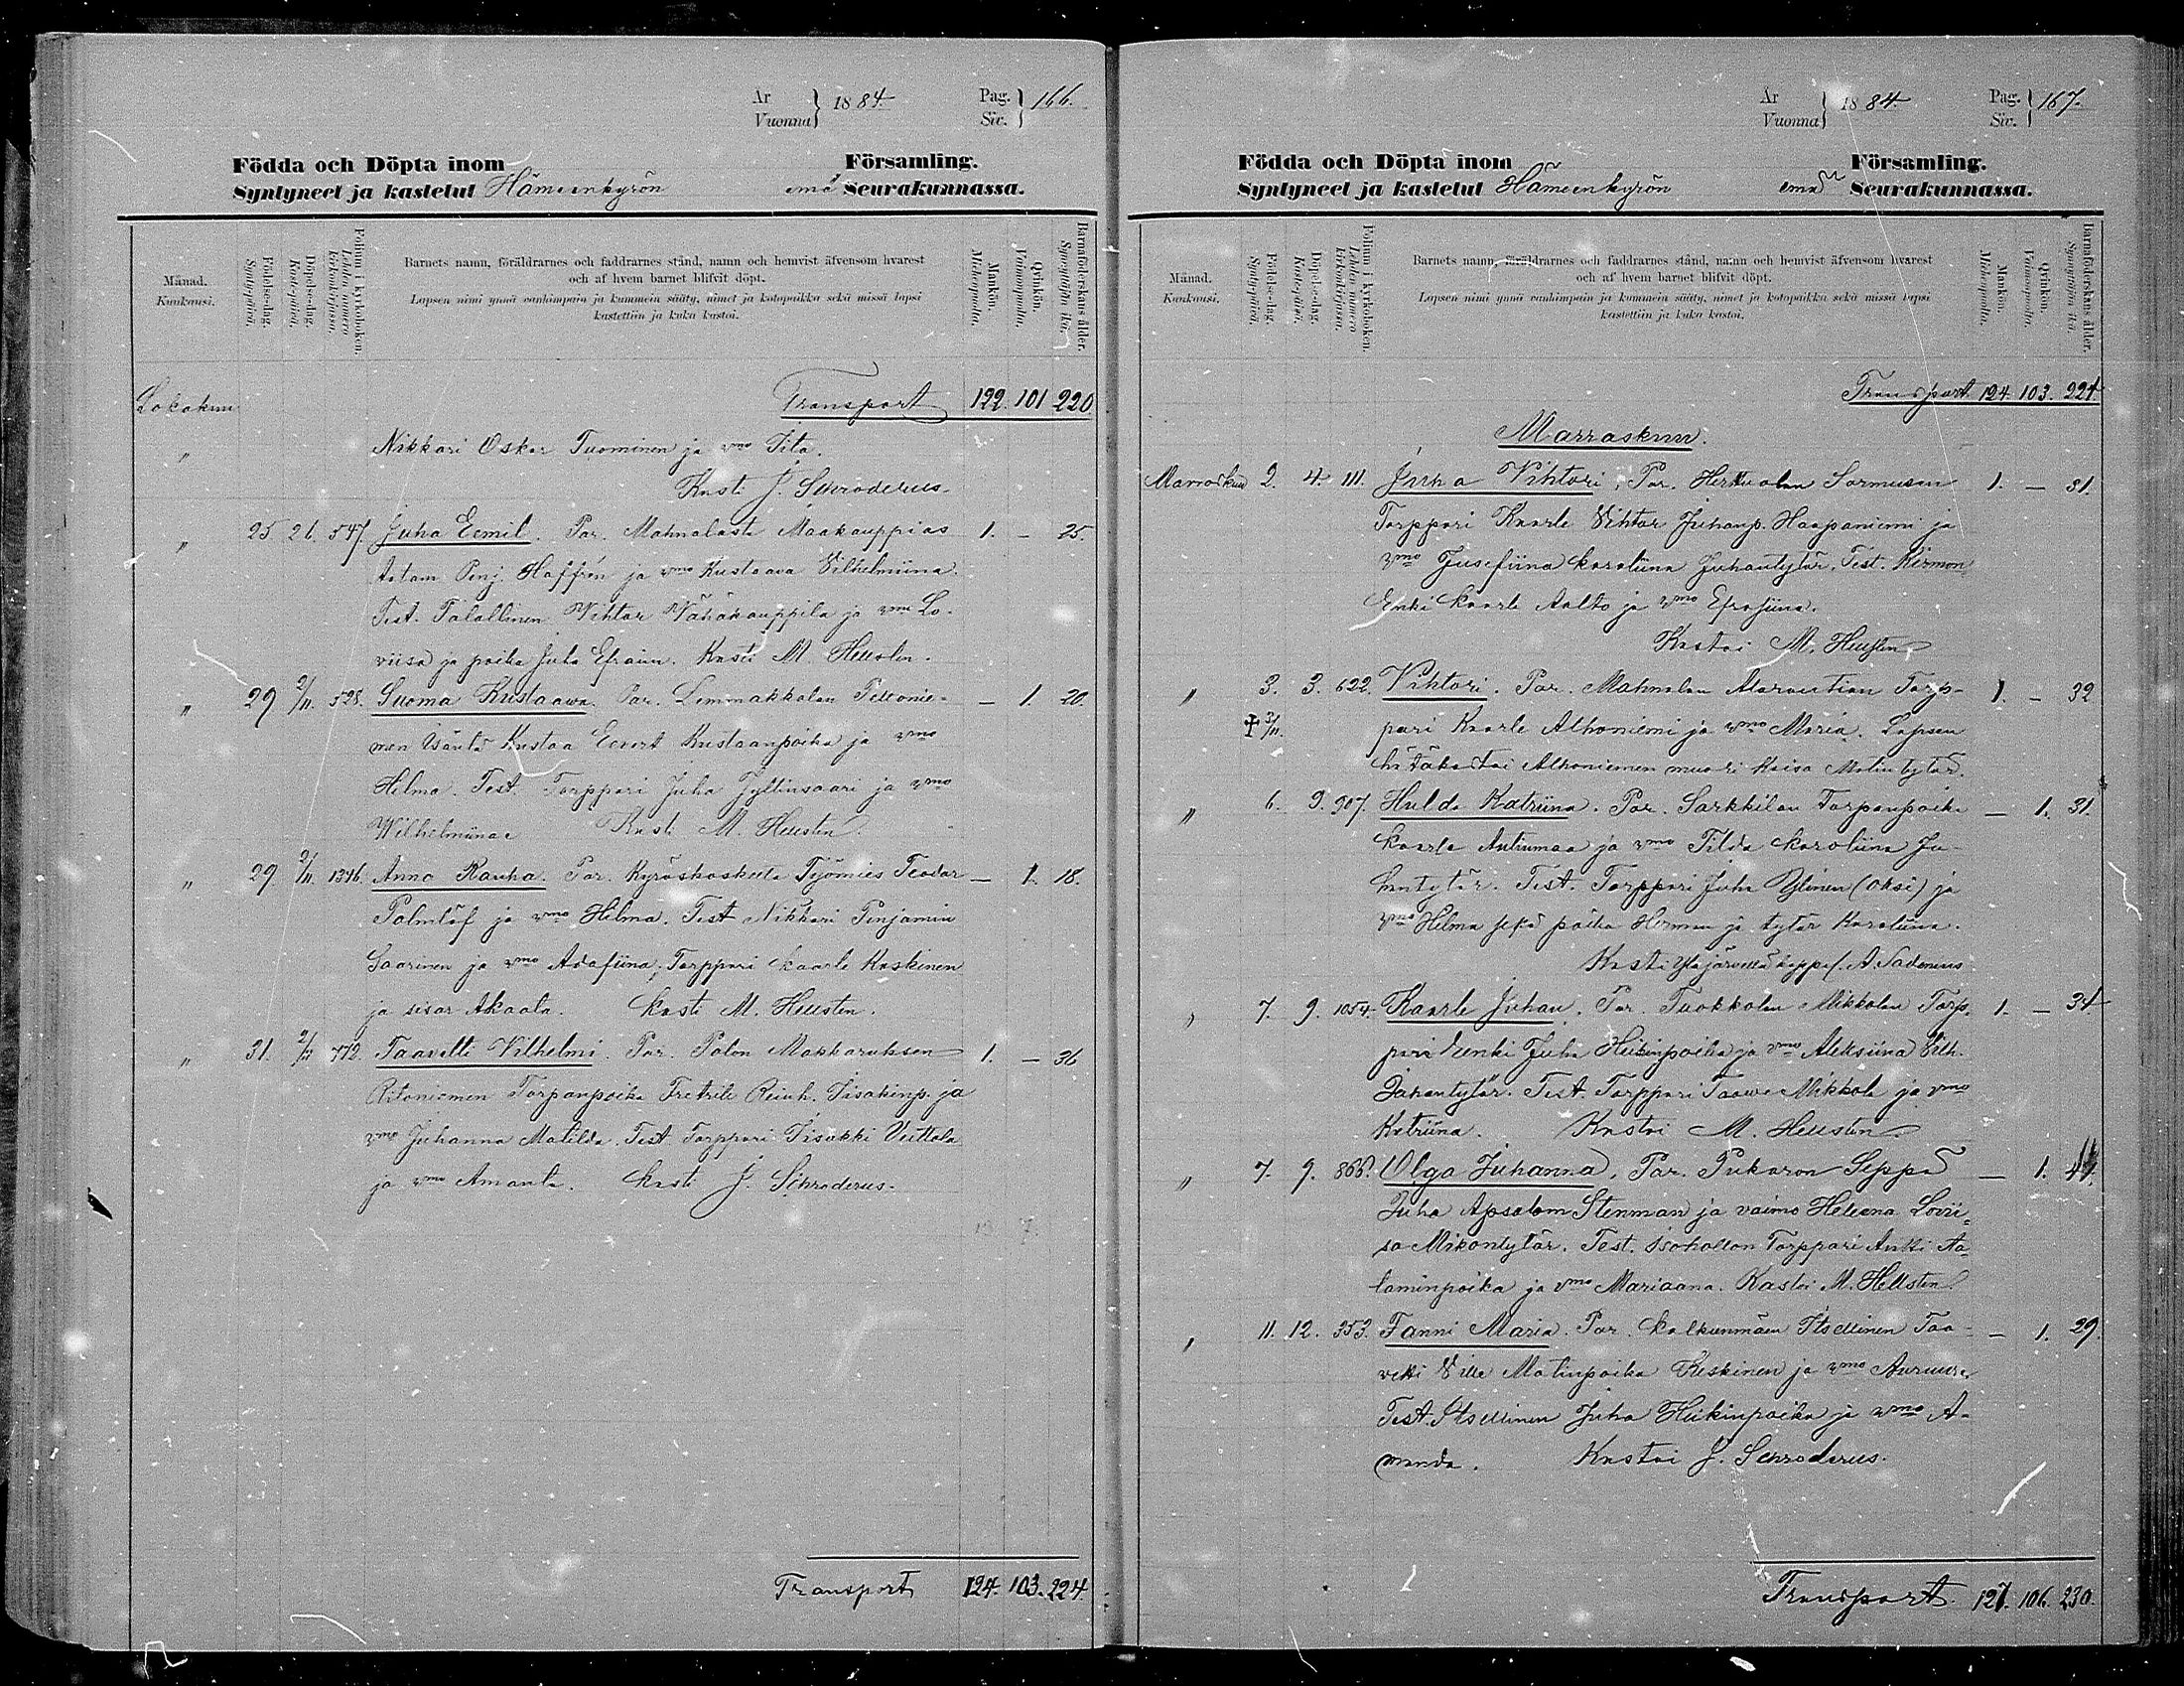 År
Vuonna } 1884.
Pag.
Siv. } 166.
Födda och Döpta inom Församling.
Syntyneet ja kastetut Hämeenkyrön emä Seurakunnassa.
Månad.
Kuukausi.
Födelse-dag.
Syntypäivä.
Döpelse-dag.
Kaste-päivä.
Folium i kyrkoboken.
Lehden numero kirkonkirjassa.
Barnets namn, föräldrarnes och faddrarnes stånd, namn och hemvist äfvensom hvarest
och af hvem barnet blifvit döpt.
Lapsen nimi ynnä vanhimpain ja kummein sääty, nimet ja kotopaikka sekä missä lapsi
kastettiin ja kuka kastoi.
Mankön.
Miehenpuolia.
Qvinkön.
Vaimonpuolia.
Barnaföderskans ålder.
Synnyttäjän ikä.
Lokakuu Transport 122. 101 220
" Nikkari Oskar Tuominen ja vmo Iita.
Kasti J. Schroderus.
" 25 26. 547. Juha Eemil. Par. Mahnalasta Maakauppias 1. — 25.
Aatam Penj. Haffrén ja vmo Kustaava Vilhelmiina.
Test. Talollinen Vihtor Vähäkauppila ja vmo Lo-
viisa ja poika Juha Efraim. Kasti M. Hellsten.
" 29 2/11. 528. Suoma Kustaawa. Par. Lemmakkalan — 1. 20.
men Isäntä Kustaa Evert Kustaanpoika ja vmo
Helma. Test. Torppari Juha Jyllinsaari ja vmo
Wilhelmiina. Kasti M. Hellsten.
" 29. 2/11. 1346. Anna Rauha. Par. Kyröskoskelta Työmies Teodor — 1. 18.
Palmlöf ja vmo Helma. Test Nikkari Penjamin
Saarinen ja vmo Adafiina, Torppari Kaarle Koskinen
ja sisar Akaata. Kasti M. Hellsten.
" 31. 2/11 772. Taavetti Vilhelmi. Par. Palon Makkaruksen 1. — 36
Ritoniemen Torpanpoika Fretrik Reinh. Iisakinp. ja
vmo Juhanna Matilda. Test. Torppari Iisakki Veittola
ja vmo Amanta. Kasti J. Schroderus.
13. 7.
Transport 124. 103. 224.
År
Vuonna } 1884.
Pag.
Siv. } 167.
Födda och Döpta inom Församling.
Syntyneet ja kastetut Hämeenkyrön emä Seurakunnassa.
Månad.
Kuukausi.
Födelse-dag.
Syntypäivä.
Döpelse-dag.
Kaste-päivä.
Folium i kyrkoboken.
Lehden numero kirkonkirjassa.
Barnets namn, föräldrarnes och faddrarnes stånd, namn och hemvist äfvensom hvarest
och af hvem barnet blifvit döpt.
Lapsen nimi ynnä vanhimpain ja kummein sääty, nimet ja kotopaikka sekä missä lapsi
kastettiin ja kuka kastoi.
Mankön.
Miehenpuolia.
Qvinkön.
Vaimonpuolia.
Barnaföderskans ålder.
Synnyttäjän ikä.
Transport 124. 103. 224.
Marraskuu.
Marraskuu 2. 4. 111. Juha Vihtori, Par. Herttualan Sormusen 1. — 31.
Torppari Kaarle Vihtor Juhanp. Haapaniemi ja
vmo Jusefiina Karoliina Juhantytär. Test. Kirmon
Renki Kaarle Aalto ja vmo Efrosiina.
Kastoi M. Hellsten
" 3. 3. 622. Vihtori. Par. Mahnalan Torp- 1. — 32
✝ 3/11. pari Kaarle Alhoniemi ja vmo Maria. Lapsen
hätäkastoi Alhoniemen muori Kaisa Matintytär.
" 6. 9. 907. Hulda Katriina. Par. Sarkkilan Torpanpoika — 1. 31.
Kaarle Antinmaa ja vmo Tilda Karoliina Ju-
hantytär. Test. Torppari Juha Ylinen (Oksi) ja
vmo Helma sekä poika Herman ja tytär Karoliina.
Kasti Ylöjärvellä kappal. A. Sadenius
" 7. 9. 1054. Kaarle Juhan. Par. Tuokkolan Mikkolan Torp- 1. — 34
pari Renki Juha Heikinpoika ja vmo Aleksiina Vilh.
Juhantytär. Test. Torppari Taave Mikkola ja vmo
Katriina. Kastoi M. Hellsten
" 7. 9. 866. Olga Juhanna, Par. Pukaron Seppä — 1. 44.
Juha Apsalom Stenman ja vaimo Heleena Lovii-
sa Mikontytär. Test. Isohollon Torppari Antti Aa-
taminpoika ja vmo Mariaana. Kastoi M. Hellsten
" 11. 12. 353. Fanni Maria. Par. Kalkunmäen Itsellinen Taa- — 1. 29.
vetti Ville Matinpoika Keskinen ja vmo Auruura
Test. Itsellinen Juha Heikinpoika ja vmo A-
manda. Kastoi J. Schroderus.
Transport. 127. 106. 230.